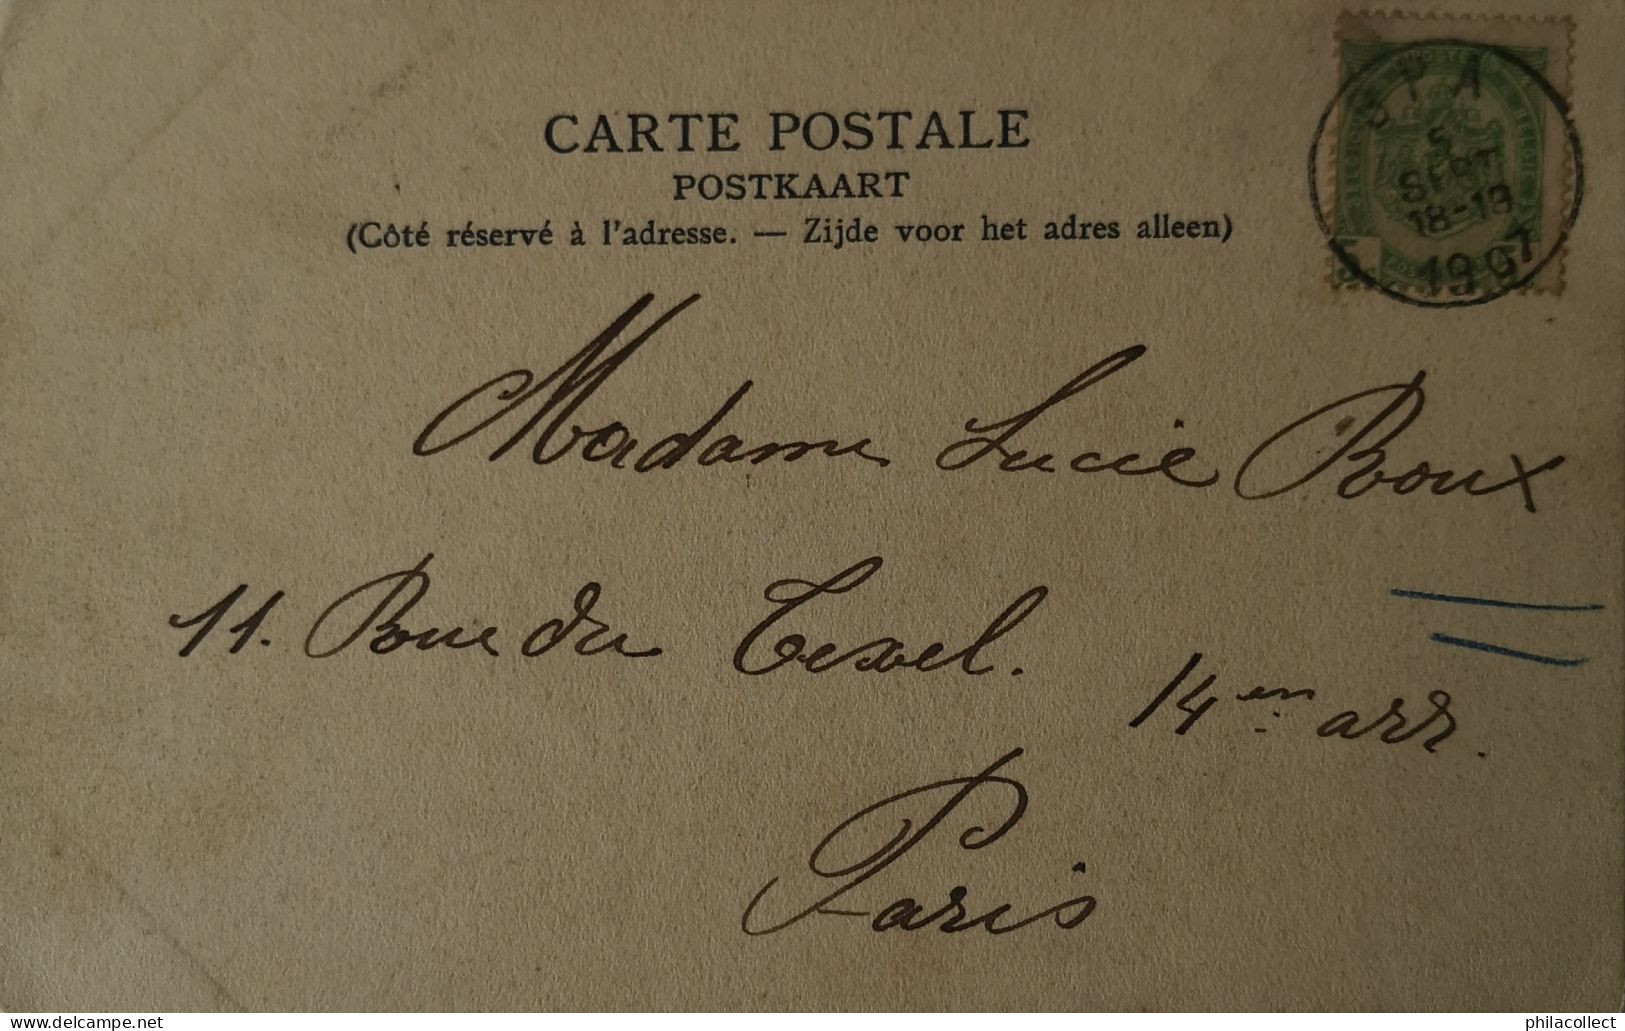 CARTE POSTALE
POSTKAART
(Côté réservé à l'adresse. — Zijde voor het adres alleen)
SPA
5
SEPT
18-19
1907
Madame Lucie Roux
11. Rue du Texel.
14em arr.
Paris
philacollect